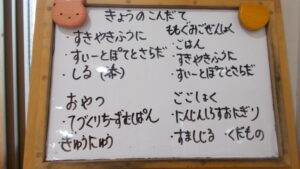 きょうのこんだて
・すきやきふうに
・すいーとぽてとさらだ
・しる(赤)
おやつ
・てづくりちーずむしぱん
ぎゅうにゅう
ももぐみごぜんしょく
・ごはん
・すきやきふうに
・すいーとぽてとさらだ
ごごしょく
・にんじんしらすおにぎり
・すましじる くだもの